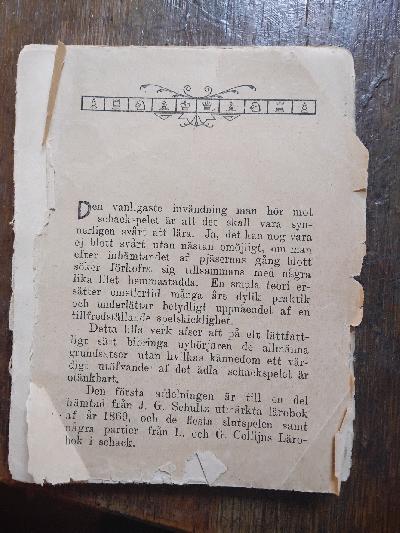 Den vanligaste invändning man hör mot
schackspelet är att det skall vara syn-
nerligen svårt att lära. Ja, det kan nog vara
ej blott svårt utan nästan omöjligt, om man
efter inhämtandet af pjäsernas gång blott
söker förkofra sig tillsammans med några
lika litet hemmastadda. En smula teori er-
sätter emellertid många års dylik praktik
och underlättar betydligt uppnåendet af en
tillfredställande spelskicklighet.
Detta lilla verk afser att på ett lättfatt-
ligt sätt bibringa nybörjaren de allmänna
grundsatser utan hvilkas kännedom ett vär-
digt utöfvande af det ädla schackspelet är
otänkbart.
Den första afdelningen är till en del
hämtad från J. G. Schultz utmärkta lärobok
af år 1869, och de flesta slutspelen samt
några partier från L. och G. Collijns Läro-
bok i schack.